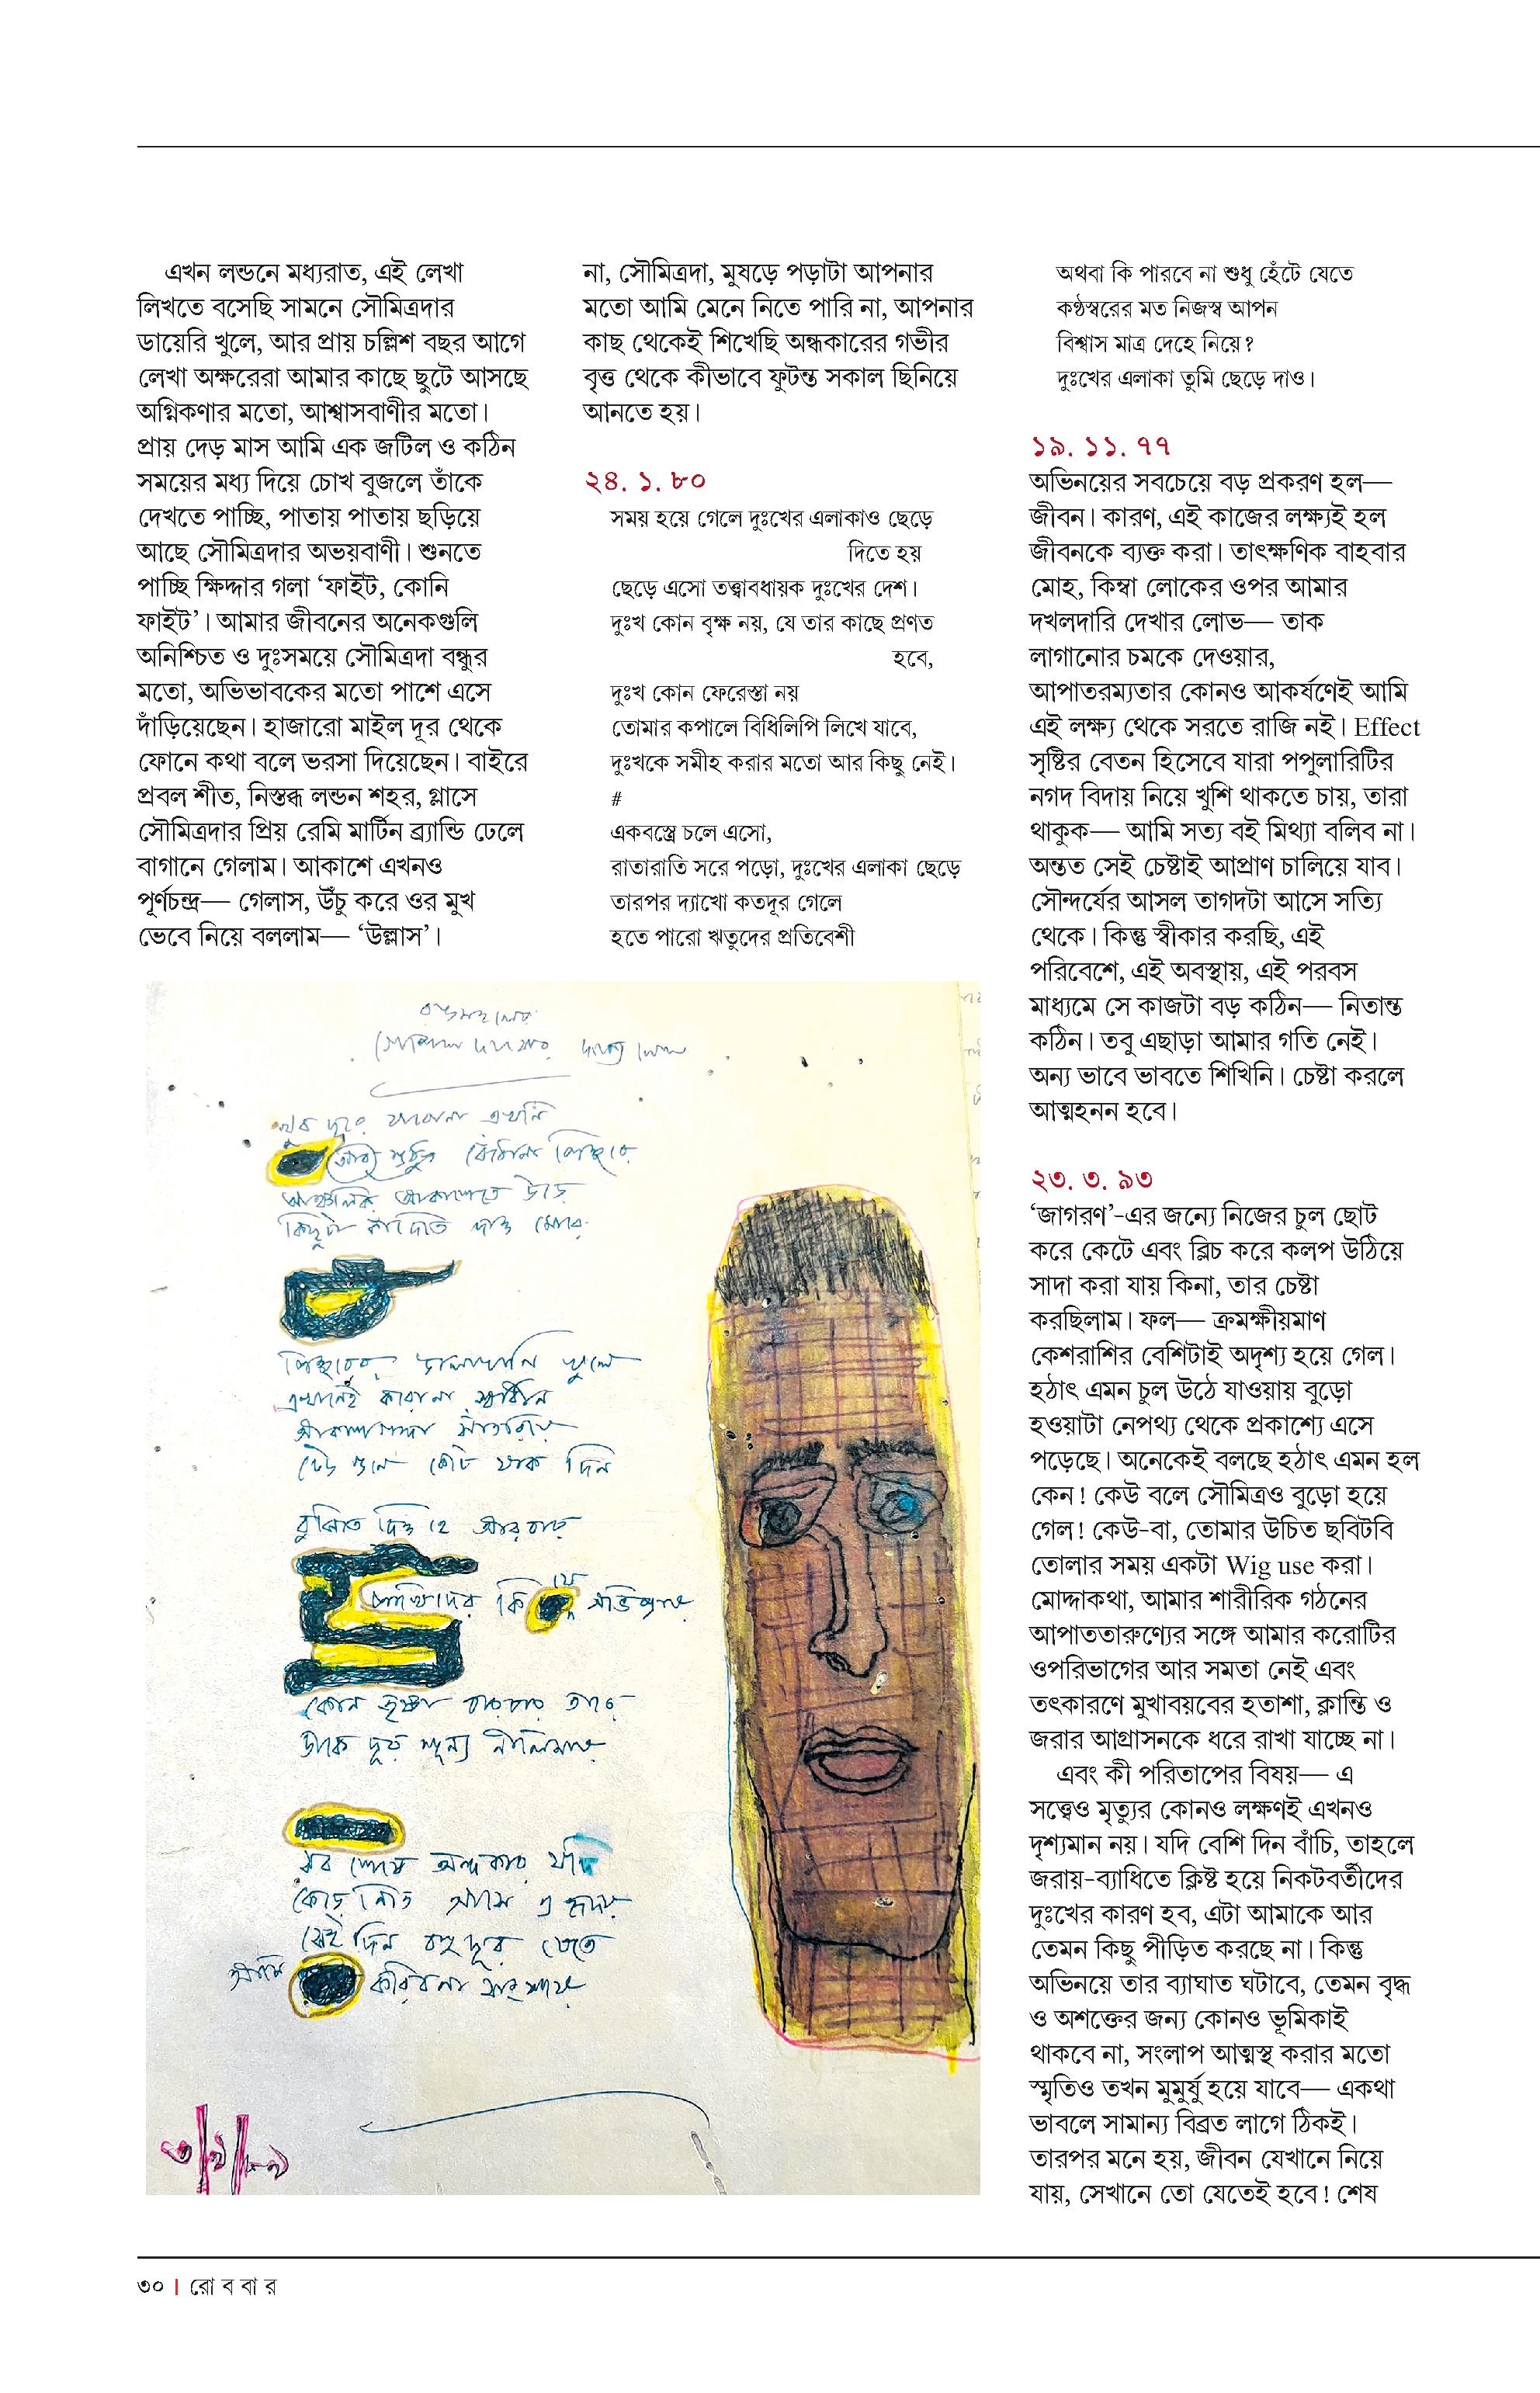 এখন লন্ডনে মধ্যরাত, এই লেখা
লিখতে বসেছি সামনে সৌমিত্রদার
ডায়েরি খুলে, আর প্রায় চল্লিশ বছর আগে
লেখা অক্ষরেরা আমার কাছে ছুটে আসছে
অগ্নিকণার মতো, আশ্বাসবাণীর মতো।
প্রায় দেড় মাস আমি এক জটিল ও কঠিন
সময়ের মধ্য দিয়ে চোখ বুজলে তাঁকে
দেখতে পাচ্ছি, পাতায় পাতায় ছড়িয়ে
আছে সৌমিত্রদার অভয়বাণী। শুনতে
পাচ্ছি ক্ষিদ্দার গলা ‘ফাইট, কোনি
ফাইট’। আমার জীবনের অনেকগুলি
অনিশ্চিত ও দুঃসময়ে সৌমিত্রদা বন্ধুর
মতো, অভিভাবকের মতো পাশে এসে
দাঁড়িয়েছেন। হাজারো মাইল দূর থেকে
ফোনে কথা বলে ভরসা দিয়েছেন। বাইরে
প্রবল শীত, নিস্তব্ধ লন্ডন শহর, গ্লাসে
সৌমিত্রদার প্রিয় রেমি মার্টিন ব্র্যান্ডি ঢেলে
বাগানে গেলাম। আকাশে এখনও
পূর্ণচন্দ্র— গেলাস, উঁচু করে ওর মুখ
ভেবে নিয়ে বললাম— ‘উল্লাস’।
না, সৌমিত্রদা, মুষড়ে পড়াটা আপনার
মতো আমি মেনে নিতে পারি না, আপনার
কাছ থেকেই শিখেছি অন্ধকারের গভীর
বৃত্ত থেকে কীভাবে ফুটন্ত সকাল ছিনিয়ে
আনতে হয়।
২৪. ১. ৮০
সময় হয়ে গেলে দুঃখের এলাকাও ছেড়ে
দিতে হয়
ছেড়ে এসো তত্ত্বাবধায়ক দুঃখের দেশ।
দুঃখ কোন বৃক্ষ নয়, যে তার কাছে প্রণত
হবে,
দুঃখ কোন ফেরেস্তা নয়
তোমার কপালে বিধিলিপি লিখে যাবে,
দুঃখকে সমীহ করার মতো আর কিছু নেই।
#
একবস্ত্রে চলে এসো,
রাতারাতি সরে পড়ো, দুঃখের এলাকা ছেড়ে
তারপর দ্যাখো কতদূর গেলে
হতে পারো ঋতুদের প্রতিবেশী
অথবা কি পারবে না শুধু হেঁটে যেতে
কণ্ঠস্বরের মত নিজস্ব আপন
বিশ্বাস মাত্র দেহে নিয়ে?
দুঃখের এলাকা তুমি ছেড়ে দাও।
১৯. ১১. ৭৭
অভিনয়ের সবচেয়ে বড় প্রকরণ হল—
জীবন। কারণ, এই কাজের লক্ষ্যই হল
জীবনকে ব্যক্ত করা। তাৎক্ষণিক বাহবার
মোহ, কিম্বা লোকের ওপর আমার
দখলদারি দেখার লোভ— তাক
লাগানোর চমকে দেওয়ার,
আপাতরম্যতার কোনও আকর্ষণেই আমি
এই লক্ষ্য থেকে সরতে রাজি নই। Effect
সৃষ্টির বেতন হিসেবে যারা পপুলারিটির
নগদ বিদায় নিয়ে খুশি থাকতে চায়, তারা
থাকুক— আমি সত্য বই মিথ্যা বলিব না।
অন্তত সেই চেষ্টাই আপ্রাণ চালিয়ে যাব।
সৌন্দর্যের আসল তাগদটা আসে সত্যি
থেকে। কিন্তু স্বীকার করছি, এই
পরিবেশে, এই অবস্থায়, এই পরবস
মাধ্যমে সে কাজটা বড় কঠিন— নিতান্ত
কঠিন। তবু এছাড়া আমার গতি নেই।
অন্য ভাবে ভাবতে শিখিনি। চেষ্টা করলে
আত্মহনন হবে।
২৩. ৩. ৯৩
‘জাগরণ’-এর জন্যে নিজের চুল ছোট
করে কেটে এবং ব্লিচ করে কলপ উঠিয়ে
সাদা করা যায় কিনা, তার চেষ্টা
করছিলাম। ফল— ক্রমক্ষীয়মাণ
কেশরাশির বেশিটাই অদৃশ্য হয়ে গেল।
হঠাৎ এমন চুল উঠে যাওয়ায় বুড়ো
হওয়াটা নেপথ্য থেকে প্রকাশ্যে এসে
পড়েছে। অনেকেই বলছে হঠাৎ এমন হল
কেন! কেউ বলে সৌমিত্রও বুড়ো হয়ে
গেল! কেউ-বা, তোমার উচিত ছবিটবি
তোলার সময় একটা Wig use করা।
মোদ্দাকথা, আমার শারীরিক গঠনের
আপাততারুণ্যের সঙ্গে আমার করোটির
ওপরিভাগের আর সমতা নেই এবং
তৎকারণে মুখাবয়বের হতাশা, ক্লান্তি ও
জরার আগ্রাসনকে ধরে রাখা যাচ্ছে না।
এবং কী পরিতাপের বিষয়— এ
সত্ত্বেও মৃত্যুর কোনও লক্ষণই এখনও
দৃশ্যমান নয়। যদি বেশি দিন বাঁচি, তাহলে
জরায়-ব্যাধিতে ক্লিষ্ট হয়ে নিকটবর্তীদের
দুঃখের কারণ হব, এটা আমাকে আর
তেমন কিছু পীড়িত করছে না। কিন্তু
অভিনয়ে তার ব্যাঘাত ঘটাবে, তেমন বৃদ্ধ
ও অশক্তের জন্য কোনও ভূমিকাই
থাকবে না, সংলাপ আত্মস্থ করার মতো
স্মৃতিও তখন মুমুর্ষু হয়ে যাবে— একথা
ভাবলে সামান্য বিব্রত লাগে ঠিকই।
তারপর মনে হয়, জীবন যেখানে নিয়ে
যায়, সেখানে তো যেতেই হবে! শেষ
৩০ | রোববার